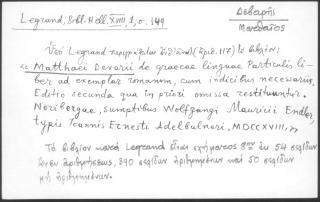 Legrand, Bibl. Hell. XVIII 1, σ. 149
Δεβαρῆς
Ματθαῖος
Ὑπὸ Legrand περιγράφεται (ἀριθ. 117) τὸ βιβλίον:
« Matthaei Devarii de graecae linguae Particulis li-
ber ad exemplar romanum, cum indicibus necessariis.
Editio secunda qua in priori omissa restituuntur.
Noribergae, sumptibus Wolfgangi Mauricii Endter,
typis Joannis Ernesti Adelbulneri, MDCCXVIII, »
Τὸ βιβλίον κατὰ Legrand εἶναι σχήματος 8ον ἐκ 54 σελίδων
ἄνευ ἀριθμήσεως, 890 σελίδων ἠριθμημένων καὶ 50 σελίδων
μὴ ἠριθμημένων.